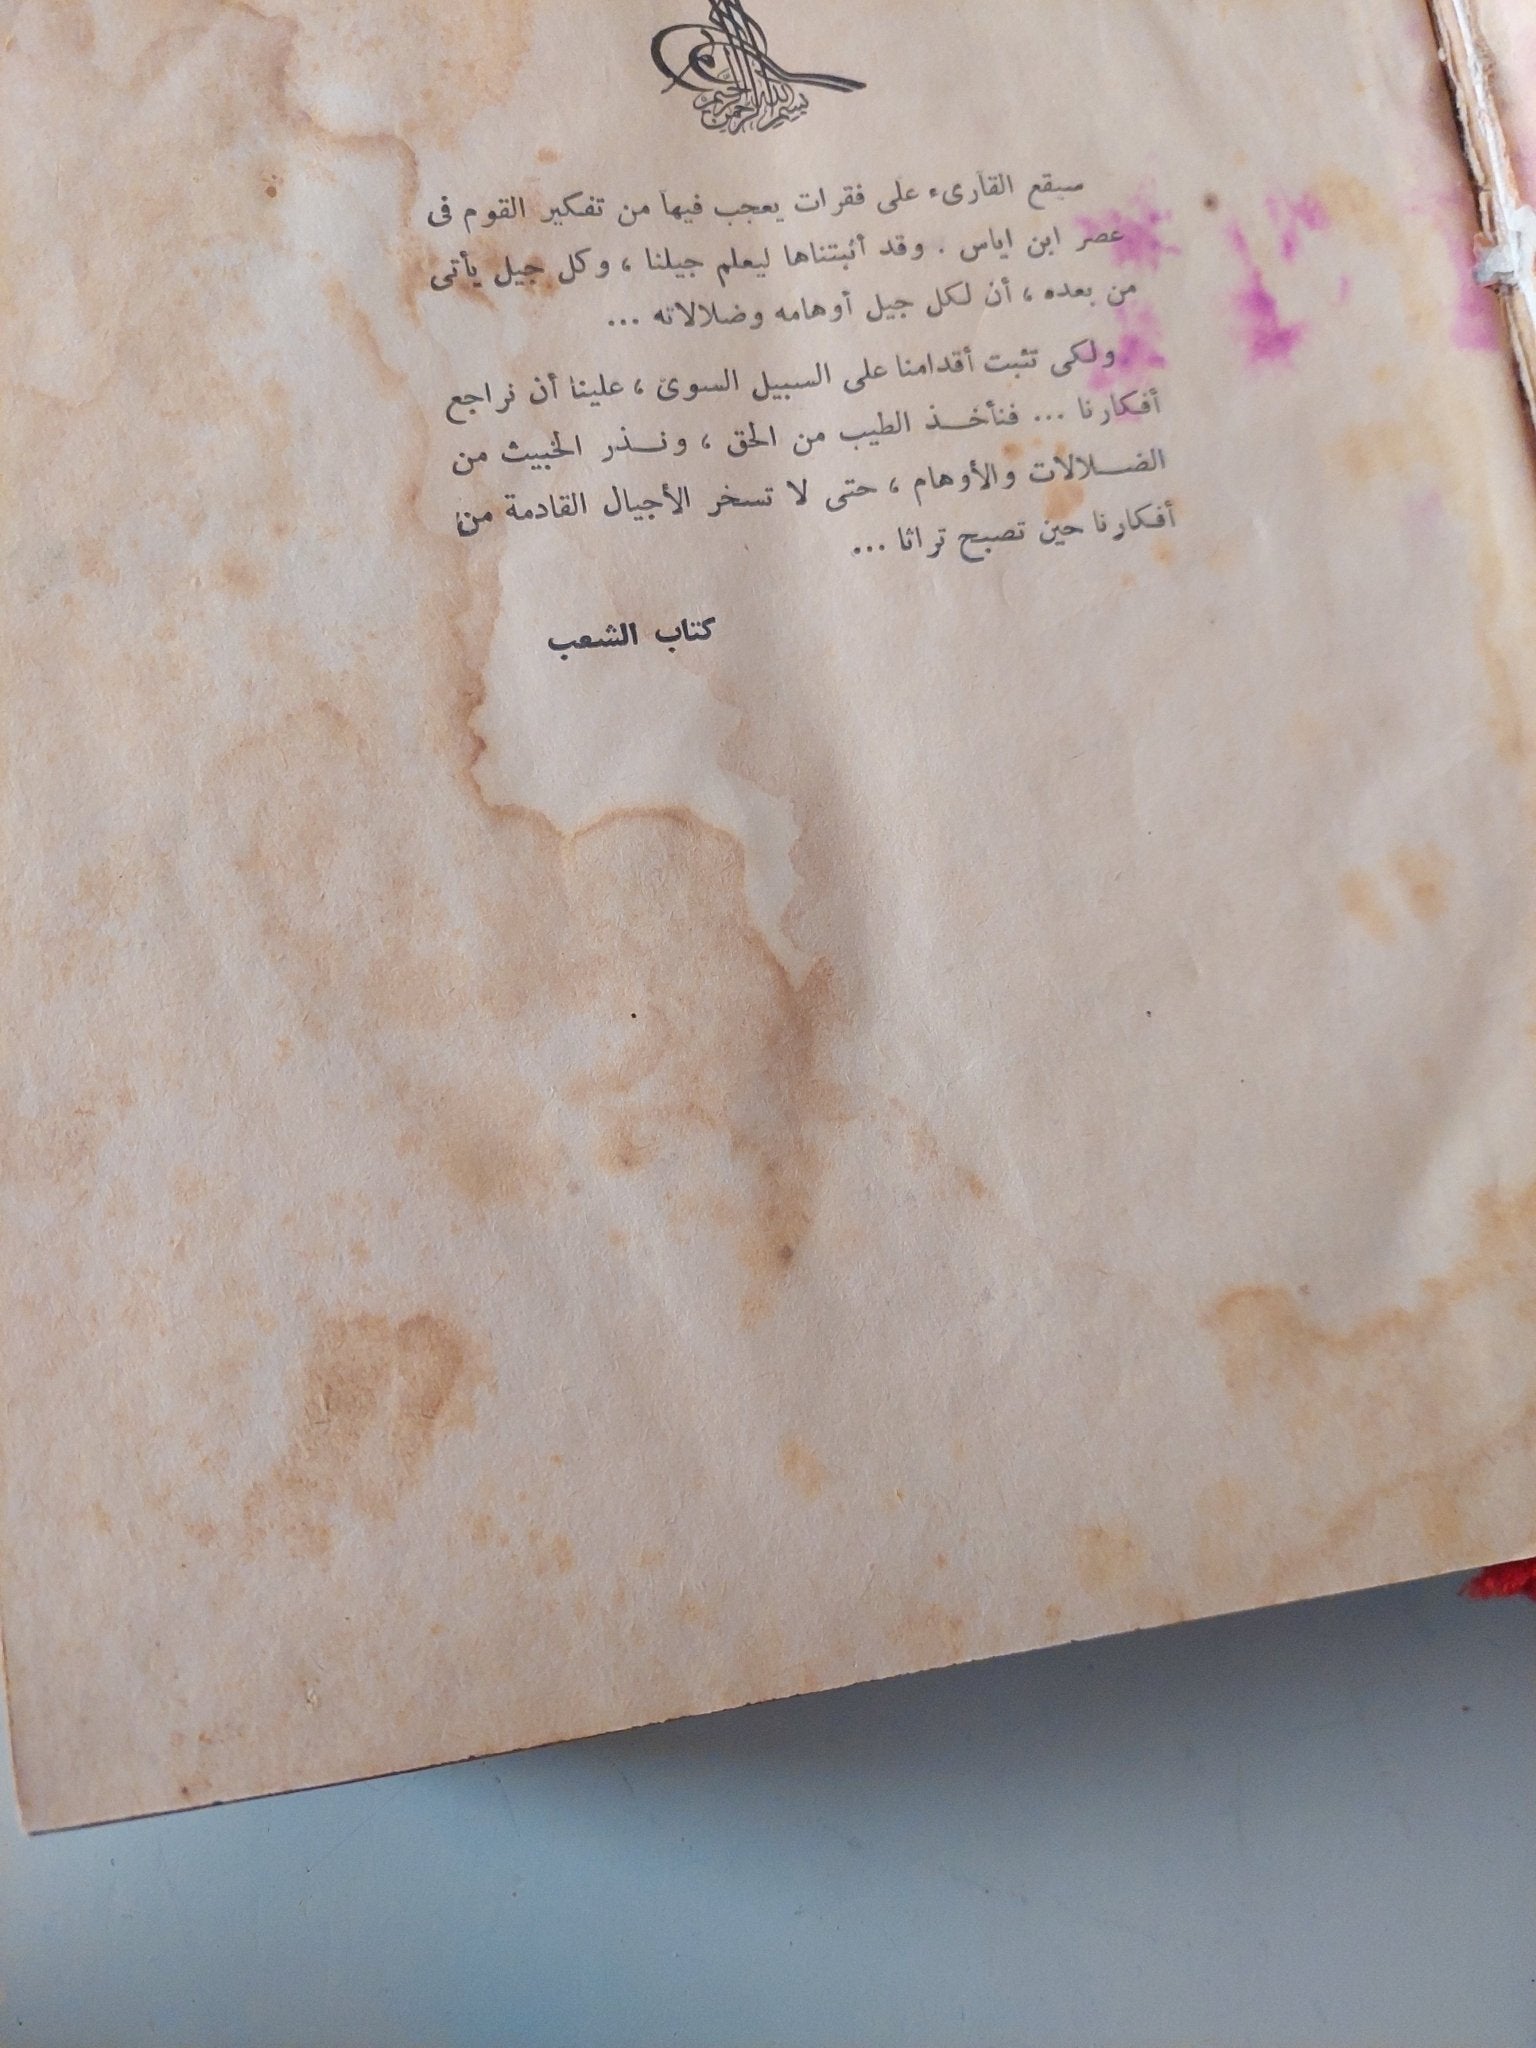 بسم الله الرحمن الرحيم
سيقع القارىء على فقرات يعجب فيها من تفكير القوم فى
عصر ابن اياس . وقد أثبتناها ليعلم جيلنا ، وكل جيل يأتى
من بعده ، أن لكل جيل أوهامه وضلالاته ...
ولكى تثبت أقدامنا على السبيل السوى ، علينا أن نراجع
أفكارنا ... فنأخذ الطيب من الحق ، ونذر الخبيث من
الضلالات والأوهام ، حتى لا تسخر الأجيال القادمة من
أفكارنا حين تصبح تراثا ...
كتاب الشعب